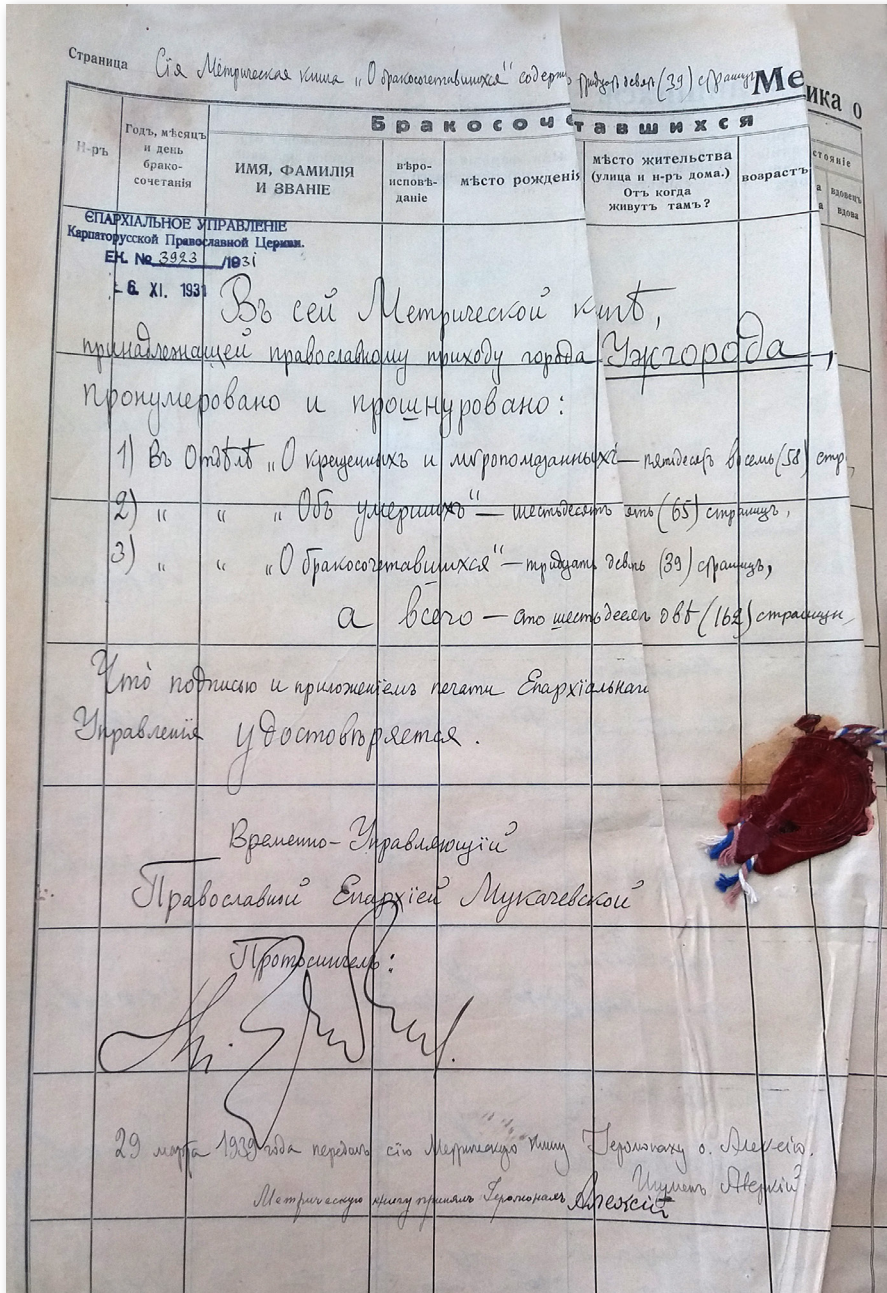 Страница Сія Метрическая книга „О бракосочетавшихся" содерж тридцать девять (39) страницъ
Ме
ика о
Бракосоч
тавшихся
Н-ръ
Годъ, мѣсяцъ
и день
брако-
сочетанія
ИМЯ, ФАМИЛІЯ
И ЗВАНІЕ
вѣро-
исповѣ-
даніе
мѣсто рожденія
мѣсто жительства
(улица и н-ръ дома.)
Отъ когда
живутъ тамъ?
возрастъ
стояніе
а
а
вдовецъ
вдова
ЄПАРХІАЛЬНОЕ УПРАВЛЕНІЕ
Карпаторусской Православной Церкви.
ЕК. № 3923 /1931
6. XI. 1931
Въ сей Метрической книгѣ,
принадлежащей православному приходу города Ужгорода,
пронумеровано и прошнуровано:
1) Въ Отдѣлѣ „О крещенныхъ и мѵропомазанныхъ"— пятьдесятъ восемь (58) стр.,
2) „ „ „Объ умершихъ"— шестьдесятъ пять (65) страницъ,
3) „ „ „О бракосочетавшихся"— тридцать девять (39) страницъ,
а всего — сто шестьдесятъ двѣ (162) страницы,
Что подписью и приложеніемъ печати Епархіальнаго
Управленія удостовѣряется.
Временно-Управляющій
Православной Епархіей Мукачевской
Протосингелъ:
29 марта 1939 года передалъ сію Метрическую книгу Іеромонаху о. Алексію.
Игуменъ Аверкій
Метрическую книгу принялъ Іеромонахъ Алексій